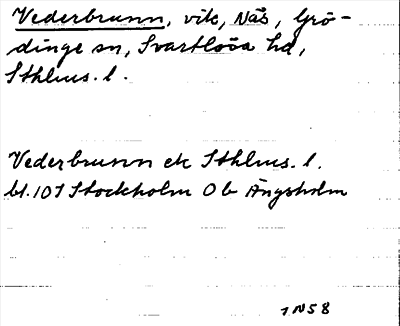 Vederbrunn, vik, Näs, Grö-
dinge sn, Svartlösa hd,
Sthlms. l.
Vederbrunn ek Sthlms. l.
bl. 10I Stockholm Ob Ängsholm
7 N58